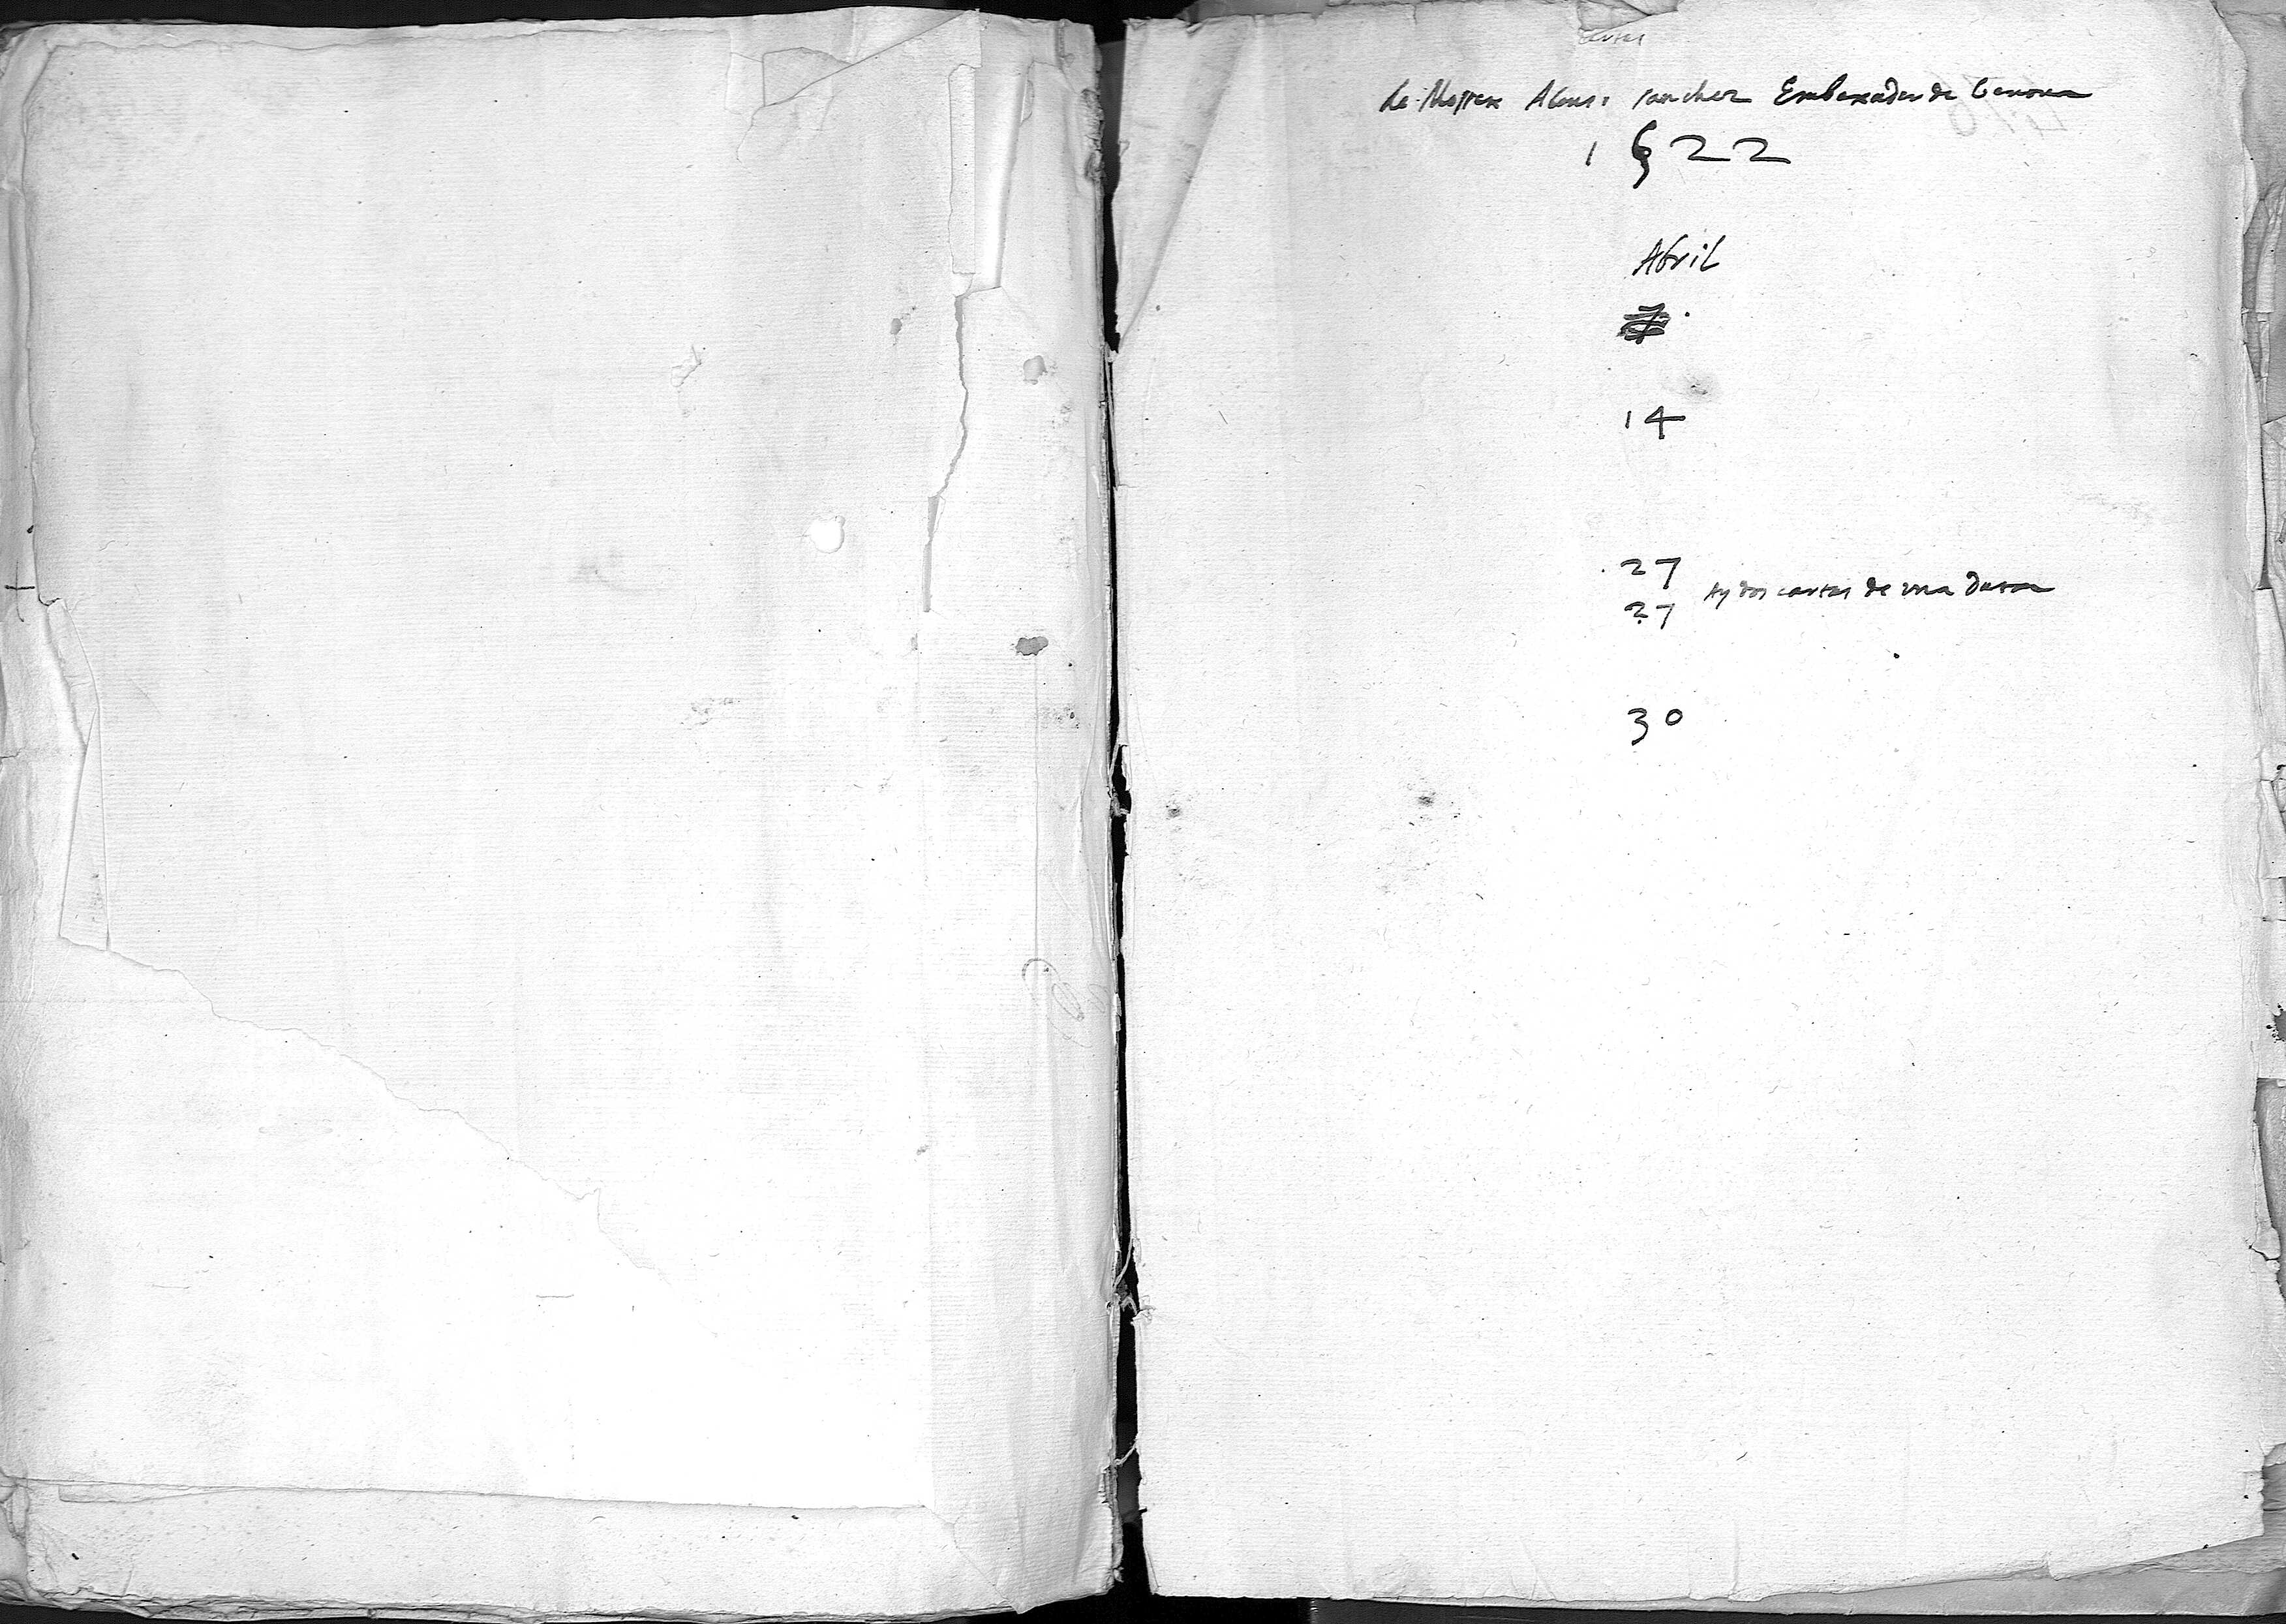 cartas
de Mossen Alonso sanchez Embaxador de Genoua
1522
Abril
14
27
27 Ay dos cartas de vna Data
30